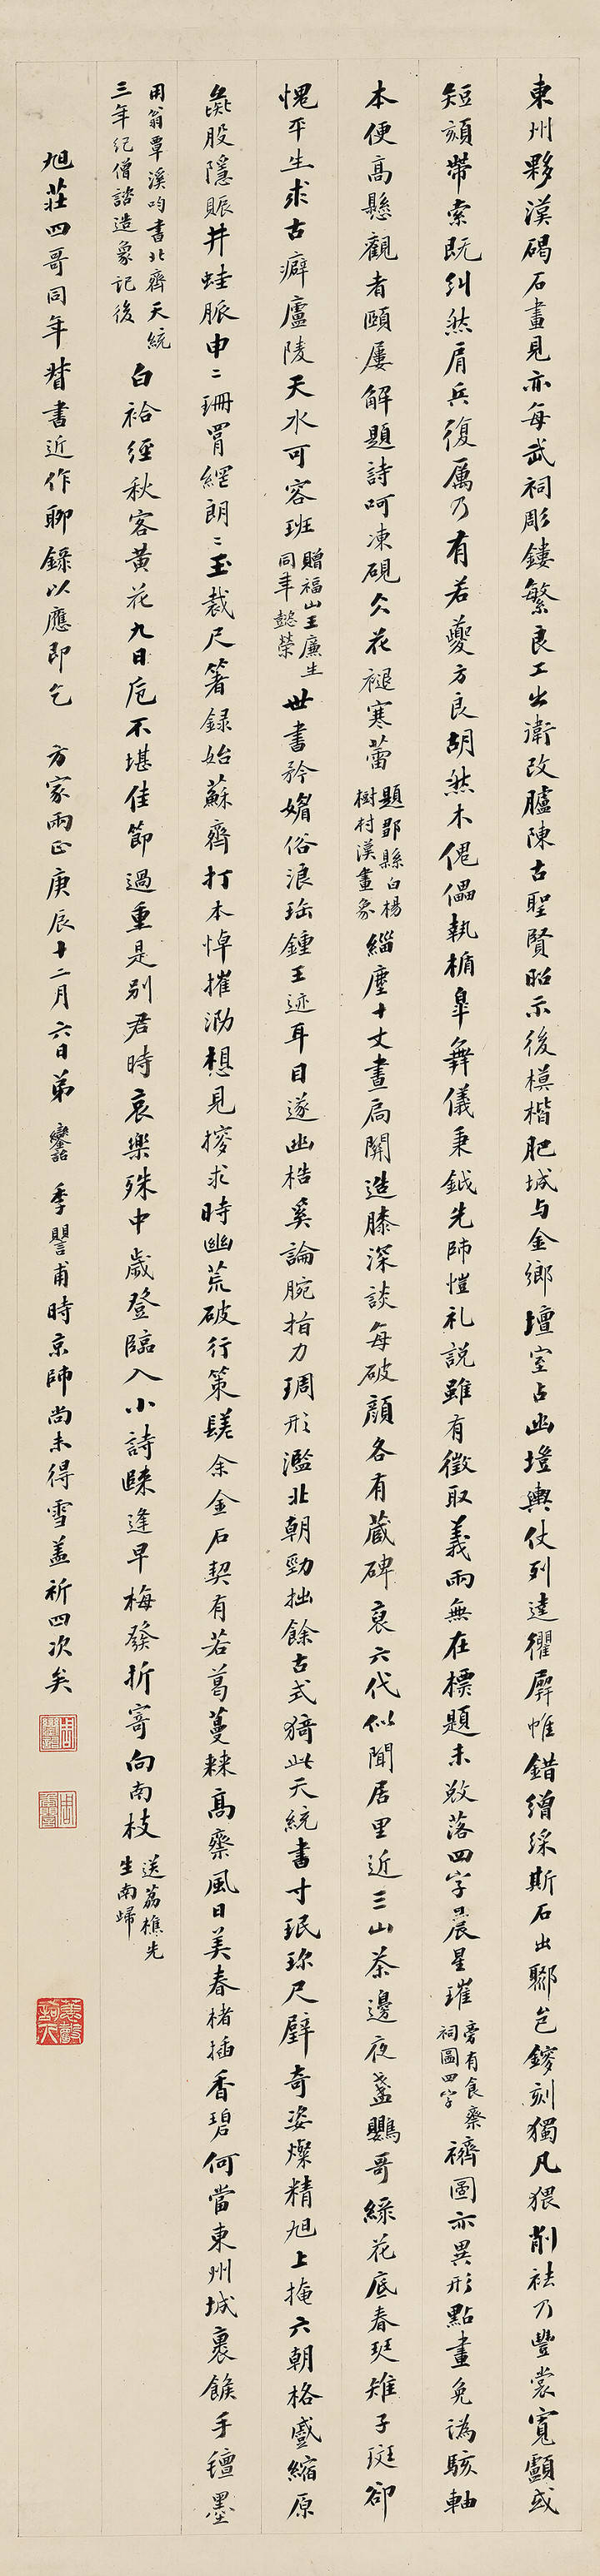 東州夥漢碣石畫見亦每武祠彫鏤繁良工出衛改臚陳古聖賢昭示後模楷肥城与金鄉壇室占幽塏輿仗列逵衢屏帷錯繒綵斯石出鄒邑鎸刻獨凡猥削袪乃豐裳寬顱或
短頦帶索既糾然肩兵復厲乃有若夔方良胡然木傀儡執楯皐舞儀秉鉞先師愷礼說雖有徵取義兩無在標題未敚落四字晨星璀
旁有食齋
祠圖四字
襱圖亦異形點畫免譌駭軸
本便高懸觀者頤屢解題詩呵凍硯久花褪寒蕾
題鄒縣白楊
樹村漢畫象
緇塵十丈晝局關造膝深談每破顏各有藏碑裒六代似聞居里近三山茶邊夜盞鸚哥綠花底春珽雉子斑卻
愧平生求古癖廬陵天水可容班
贈福山王廉生
同年懿榮
世書矜媚俗浪珤鍾王迹耳目遂幽梏奚論腕指力琱形濫北朝勁拙餘古式猗此天統書寸珉珎尺璧奇姿燦精旭上掩六朝格蹙縮原
彘股隱賑井蛙脈申〻珊罥網朗〻玉裁尺箸錄始蘇齊打本悼摧泐想見搜求時幽荒破行策髦余金石契有若葛蔓棘高齋風日美春楮插香碧何當東州城裹餱手氊墨
用翁覃溪韵書北齊天統
三年紀僧諮造象記後
白袷經秋客黃花九日卮不堪佳節過重是別君時哀樂殊中歲登臨入小詩睞逢早梅發折寄向南枝
送荔樵先
生南歸
旭莊四哥同年督書近作聊錄以應即乞 方家兩正庚辰十二月六日弟鑾詒季譻甫時京師尚未得雪蓋祈四次矣